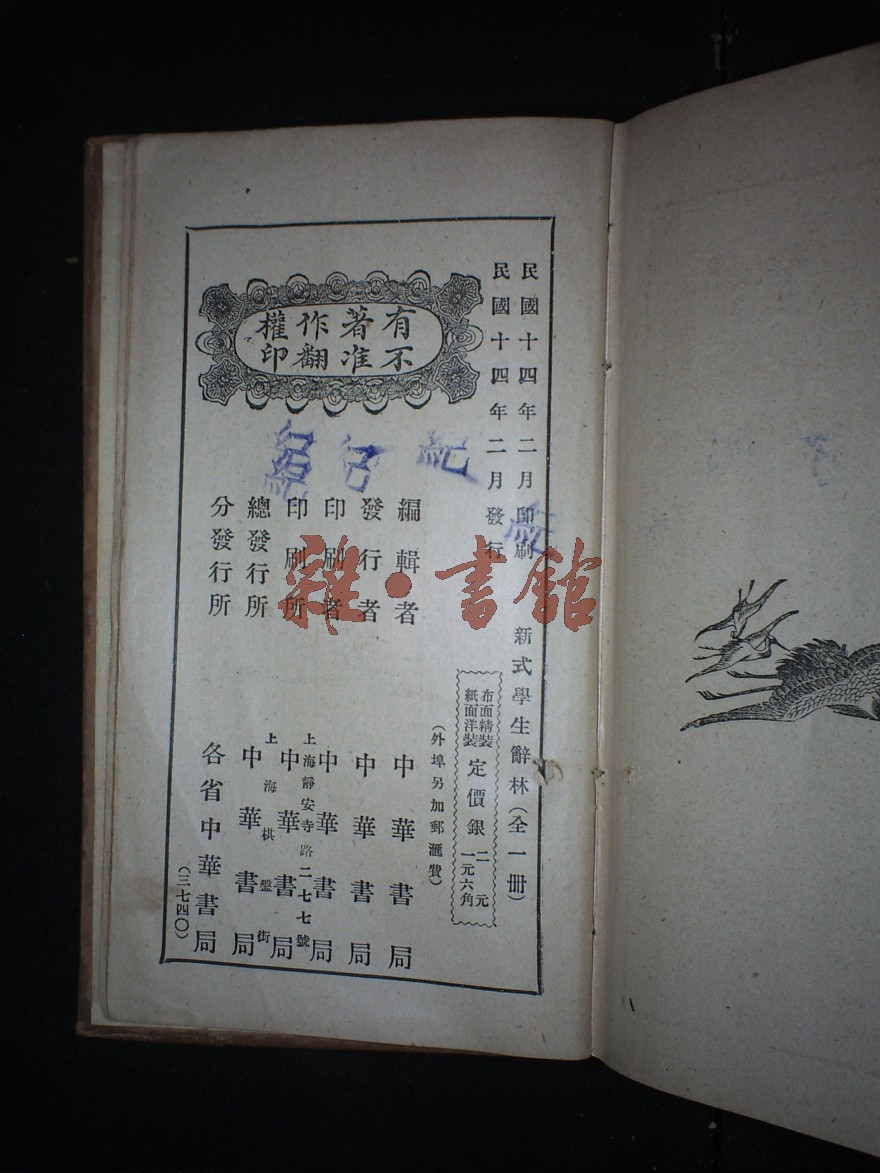 民國十四年二月印刷
民國十四年二月發行
新式學生辭林(全一冊)
布面精裝
紙面洋裝
定價銀
二元
一元六角
(外埠另加郵滙費)
有不著准作翻權印
編輯者 中華書局
發行者 中華書局
印刷者 中華書局
上海靜安寺路二七七號
印刷所 中華書局
上海棋盤街
總發行所 中華書局
分發行所 各省中華書局
(三七四〇)
紀
紀
紀
紀
雜·書館